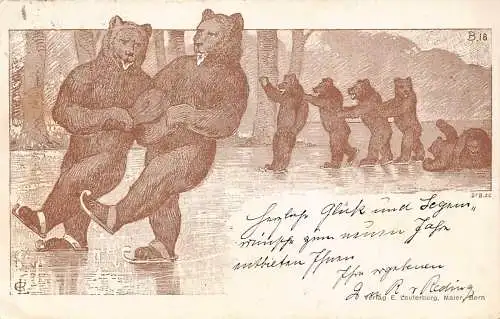 B. 18
Herzliche Glück und Segens„
wünsche zum neuen Jahr
entbieten Ihnen
Ihre ergebenen
v. Reding
Verlag E. Lauterburg, Maler, Bern